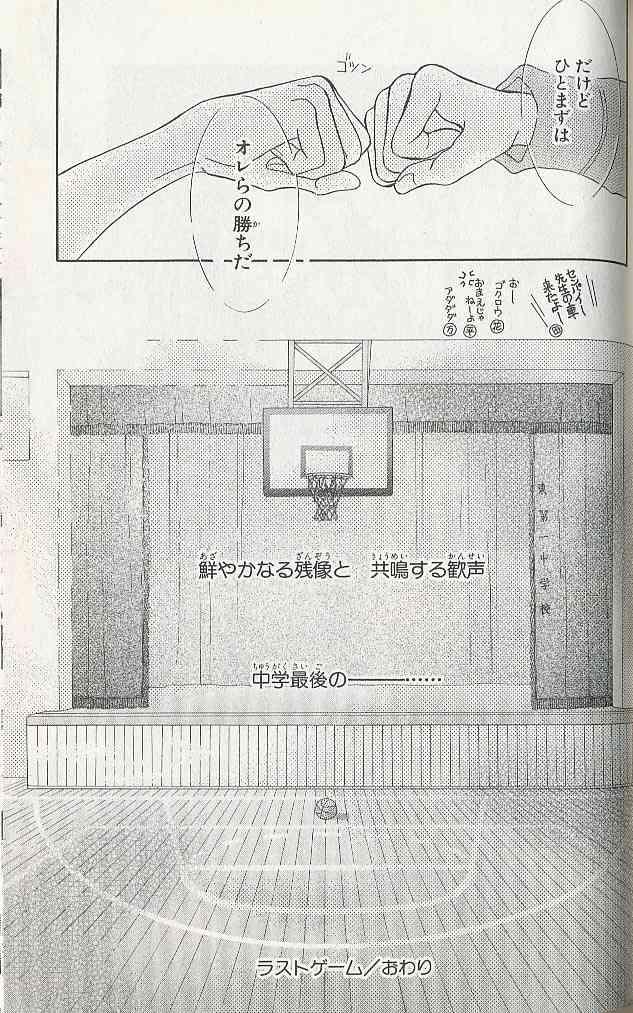 だけど
ひとまずは
ゴツン
オレらの勝ちだ
センパイ〜
先生の車
来たよー
おー
ゴクロウ 花
おまえじゃ
ねーよ 平
アダダダ 万
鮮やかなる残像と 共鳴する歓声
中学最後の――――……
東第一中学校
ラストゲーム／おわり